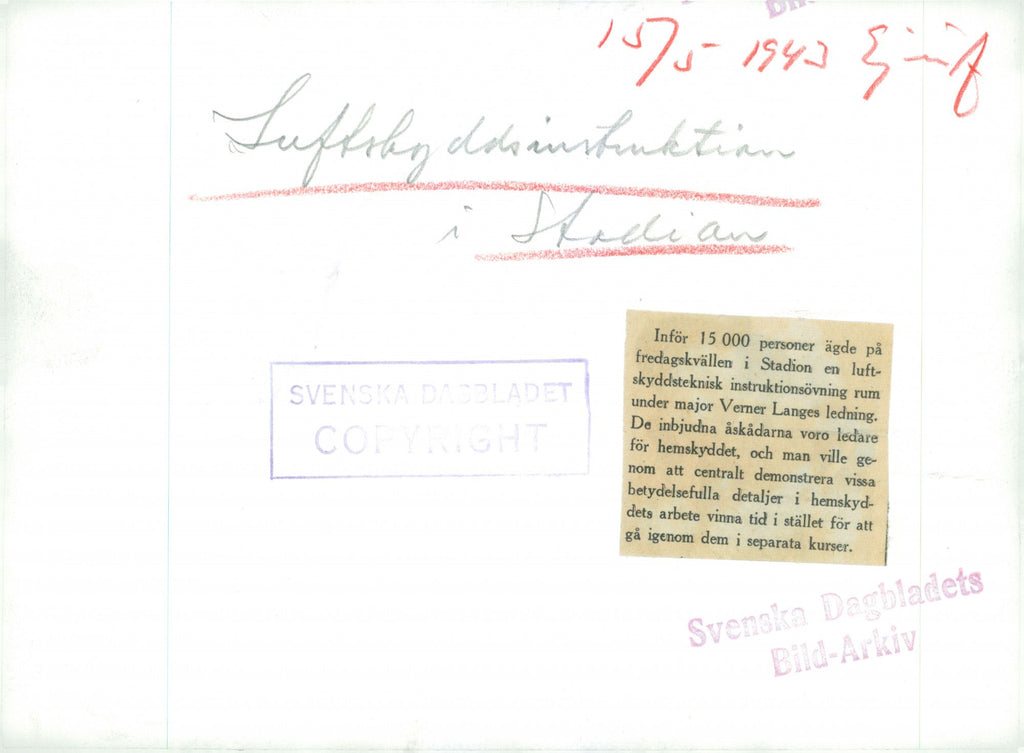 15/5 1943
Luftskyddsinstruktion
i Stadion
Inför 15 000 personer ägde på
fredagskvällen i Stadion en luft-
skyddsteknisk instruktionsövning rum
under major Verner Langes ledning.
De inbjudna åskådarna voro ledare
för hemskyddet, och man ville ge-
nom att centralt demonstrera vissa
betydelsefulla detaljer i hemskyd-
dets arbete vinna tid i stället för att
gå igenom dem i separata kurser.
SVENSKA DAGBLADET
COPYRIGHT
Svenska Dagbladets
Bild-Arkiv